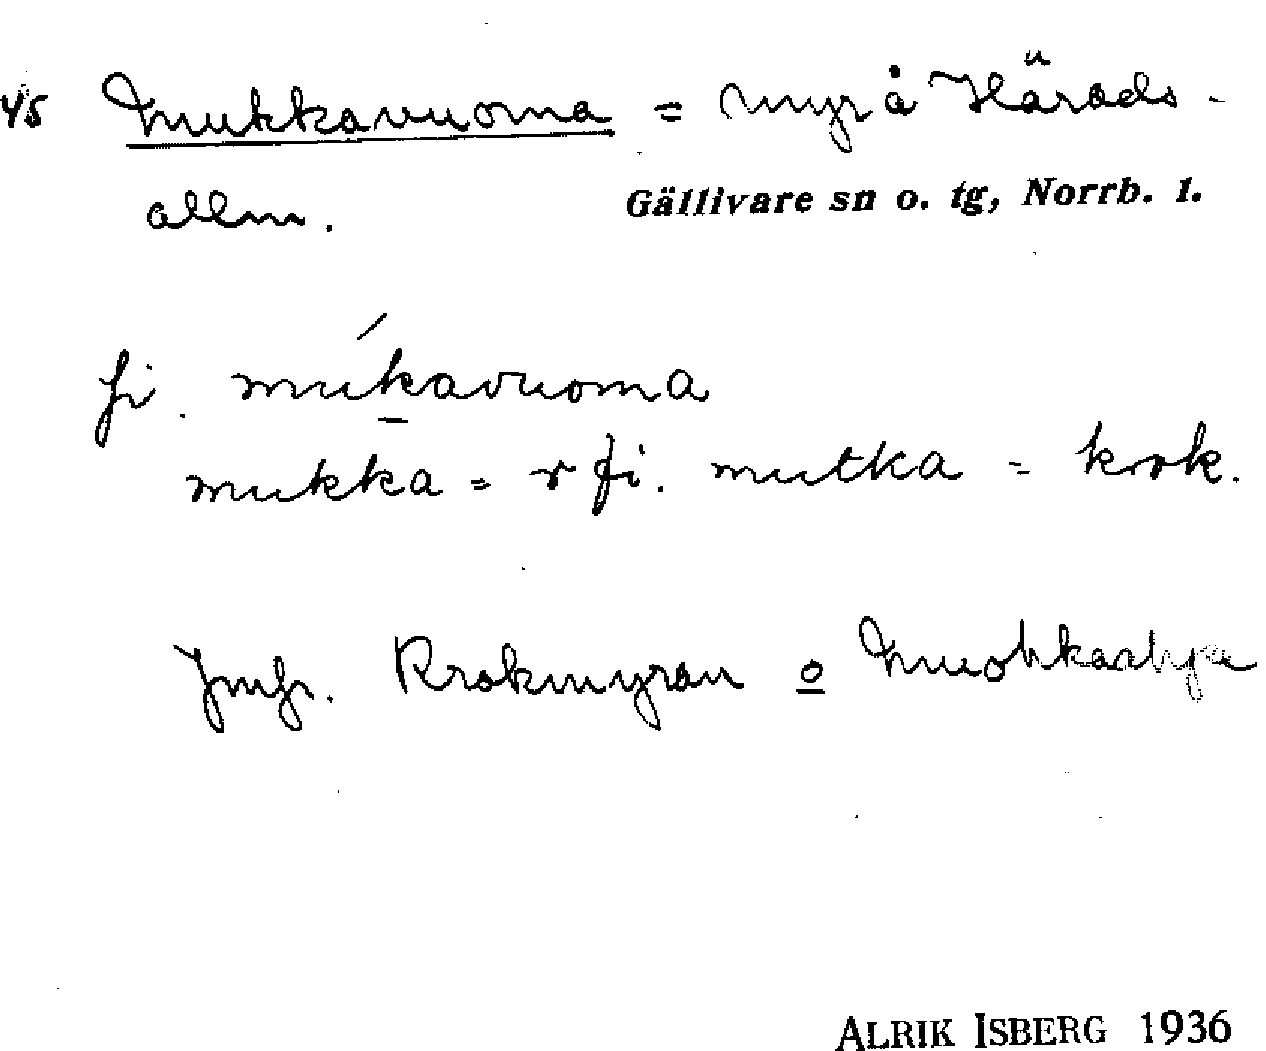 45 Mukkavuoma = myr å Härads-
allm. Gällivare sn o. tg, Norrb. l.
fi. mukavuoma
mukka = r fi. mutka = krok.
Jmfr. Krokmyran o
ALRIK ISBERG 1936